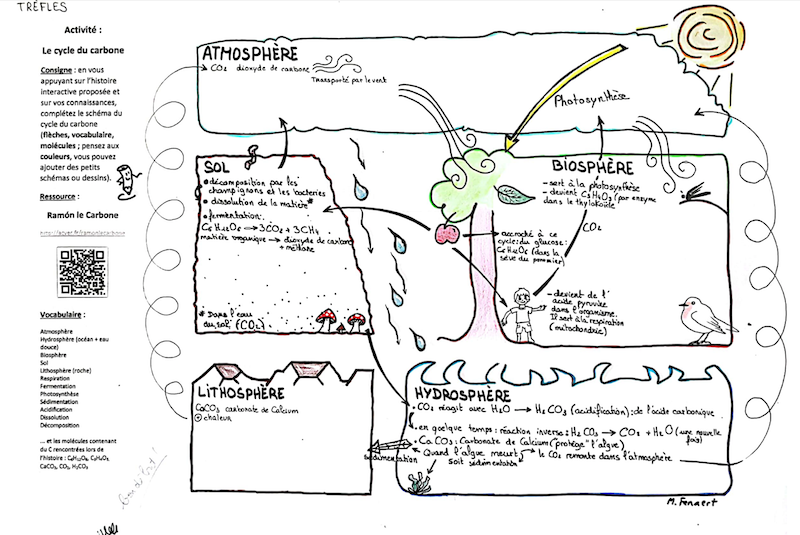 TRÉFLES
Activité :
Le cycle du carbone
Consigne : en vous
appuyant sur l'histoire
interactive proposée et
sur vos connaissances,
complétez le schéma du
cycle du carbone
(flèches, vocabulaire,
molécules ; pensez aux
couleurs, vous pouvez
ajouter des petits
schémas ou dessins).
Ressource :
Ramón le Carbone
Vocabulaire :
Atmosphère
Hydrosphère (océan + eau
douce)
Biosphère
Sol
Lithosphère (roche)
Respiration
Fermentation
Photosynthèse
Sédimentation
Acidification
Dissolution
Décomposition
... et les molécules contenant
du C rencontrées lors de
l'histoire : C₆H₁₂O₆, C₃H₆O₃,
CaCO₃, CO₂, H₂CO₃
ATMOSPHÈRE
CO₂ dioxyde de carbone
Transporté par le vent
Photosynthèse
SOL
• décomposition par les
champignons et les bactéries
• dissolution de la matière*
• fermentation:
C₆H₁₂O₆ → 3CO₂ + 3CH₄
matière organique → dioxyde de carbone
+ méthane
* Dans l'eau
du sol (CO₂)
BIOSPHÈRE
- sert à la photosynthèse
- devient C₃H₆O₃ (par enzyme
dans le thylakoïde
CO₂
- accroché à ce
cycle: du glucose:
C₆H₁₂O₆ (dans la
sève du pommier)
- devient de l'
acide pyruvique
dans l'organisme.
Il sert à la respiration
(mitochondrie)
LITHOSPHÈRE
CaCO₃ carbonate de Calcium
⊕ chaleur
HYDROSPHÈRE
• CO₂ réagit avec H₂O → H₂CO₃ (acidification): de l'acide carbonique
• en quelque temps: réaction inverse: H₂CO₃ → CO₂ + H₂O (une nouvelle
fois)
• CaCO₃: Carbonate de Calcium (protège "l'algue)
Quand l'algue meurt → le CO₂ remonte dans l'atmosphère
soit sédimentation
Sédimentation
M. Fenaert